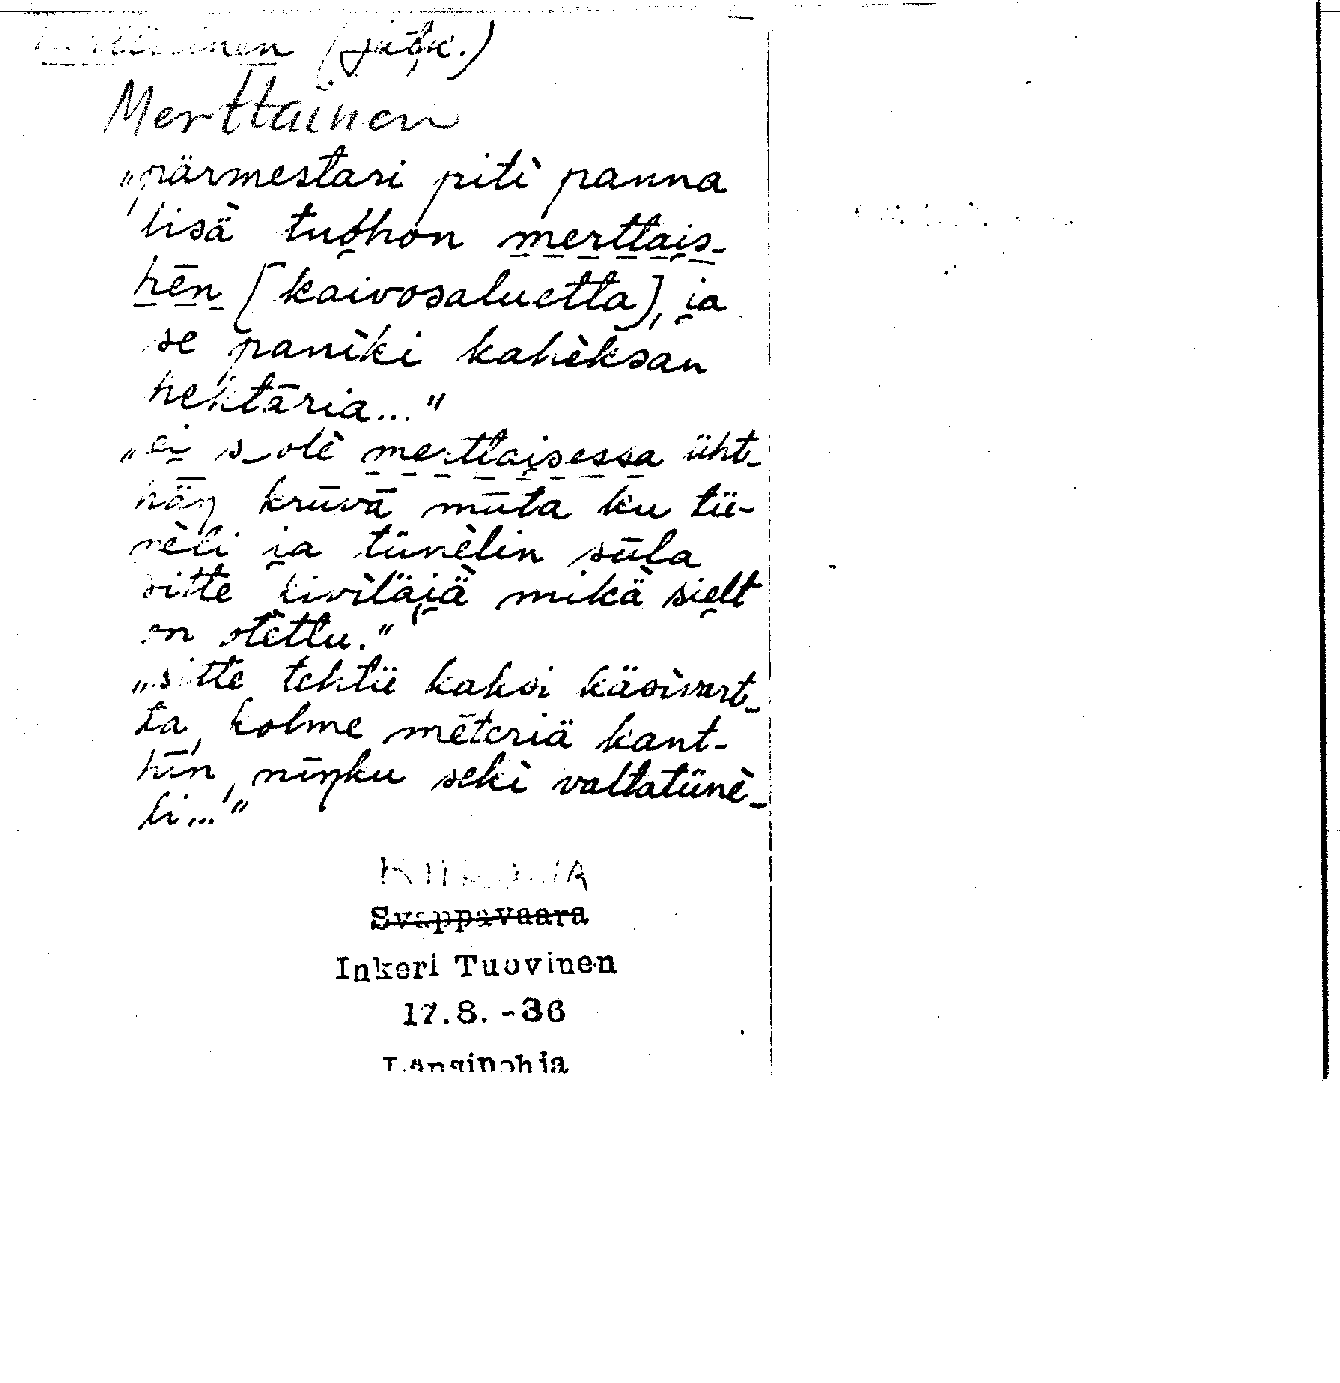 (jatk.)
Merttainen
„pärmestari piti panna
lisä tuohon merttais-
hēn [kaivosaluetta], ja
se paniki kahèksan
hehtāria..."
„ei s_ole merttaisessa üht-
häŋ krūvā mūta ku tü-
nèli ja tünèlin sūla
sitte kiviläjä mikä sielt
on otettu."
„sitte tehtü kaksi käsivart-
ta, kolme mēteriä kant-
hīn, nīŋku seki valtatünè-
li..."
Svappavaara
Inkeri Tuovinen
17.8.-36
Länsipohja